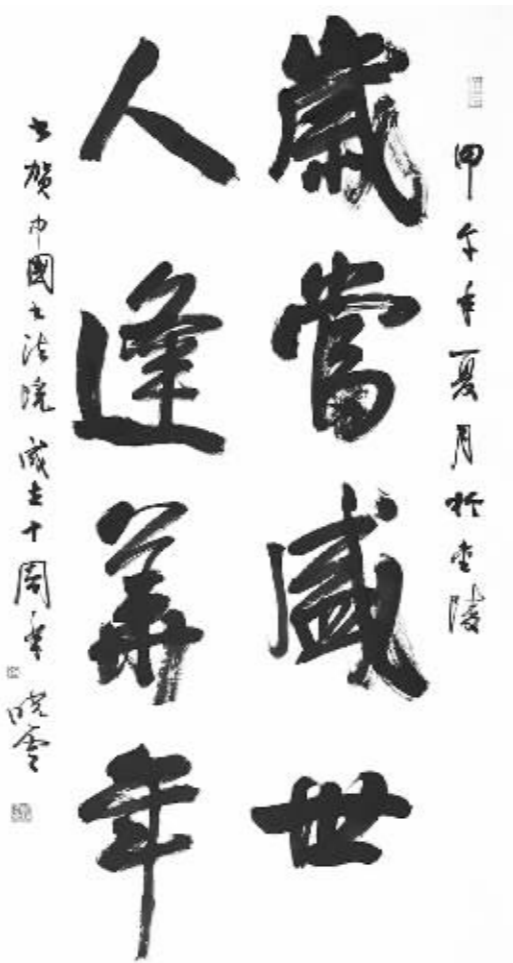 甲午年夏月於金陵
歲當盛世
人逢華年
書賀中國書法院成立十周年
曉雲